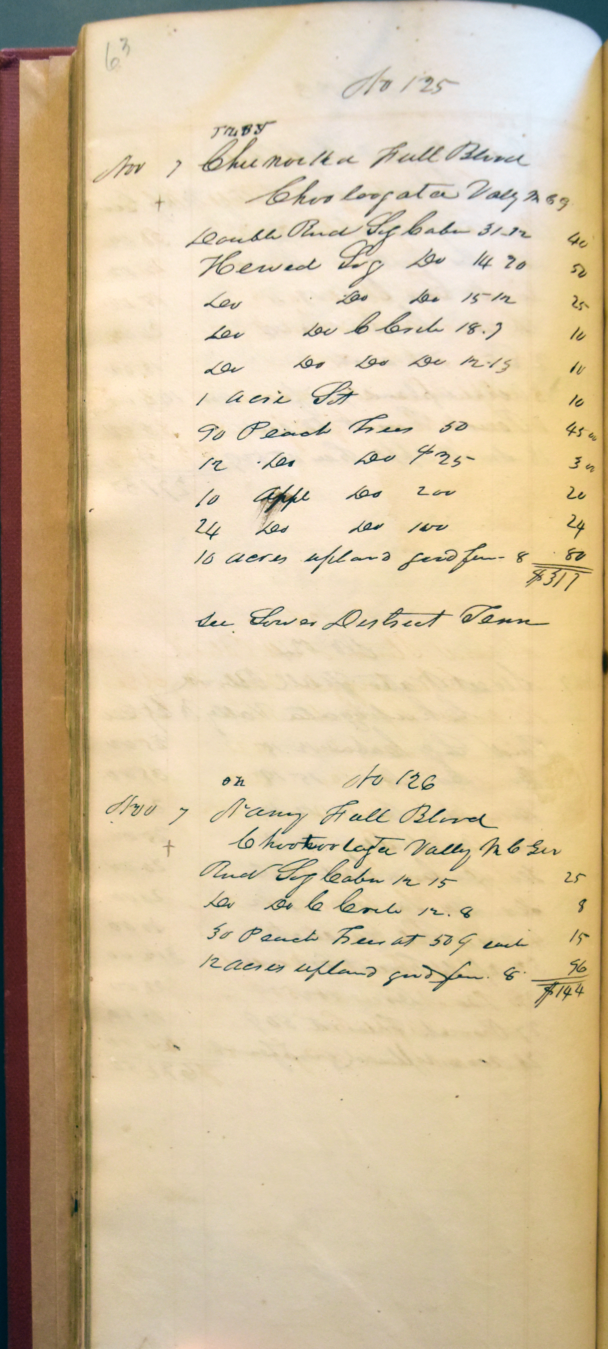 63
No 125
Nov 7 Chunocka Full Blood
Choologata Vally N
Double Rud Log Cabn 31-12 40
Hewed Log Do 14 20 50
Do Do Do 15-12 25
Do Do C Crib 18.9 10
Do Do Do Do 12-15 10
1 acre Lot 10
90 Peach Trees 50 45 00
12 Do Do $ 25 3 00
10 Appl Do 200 20
24 Do Do 100 24
10 acres upland good fen- 8 80
$317
see Lower District Tenn
No 126
Nov 7 Nancy Full Blood
Valley
Rud Log Cabn 12 15 25
Do Do C Crib 12.8 8
30 Peach Trees at 50 each 15
12 acres upland good fen. 8 96
$144